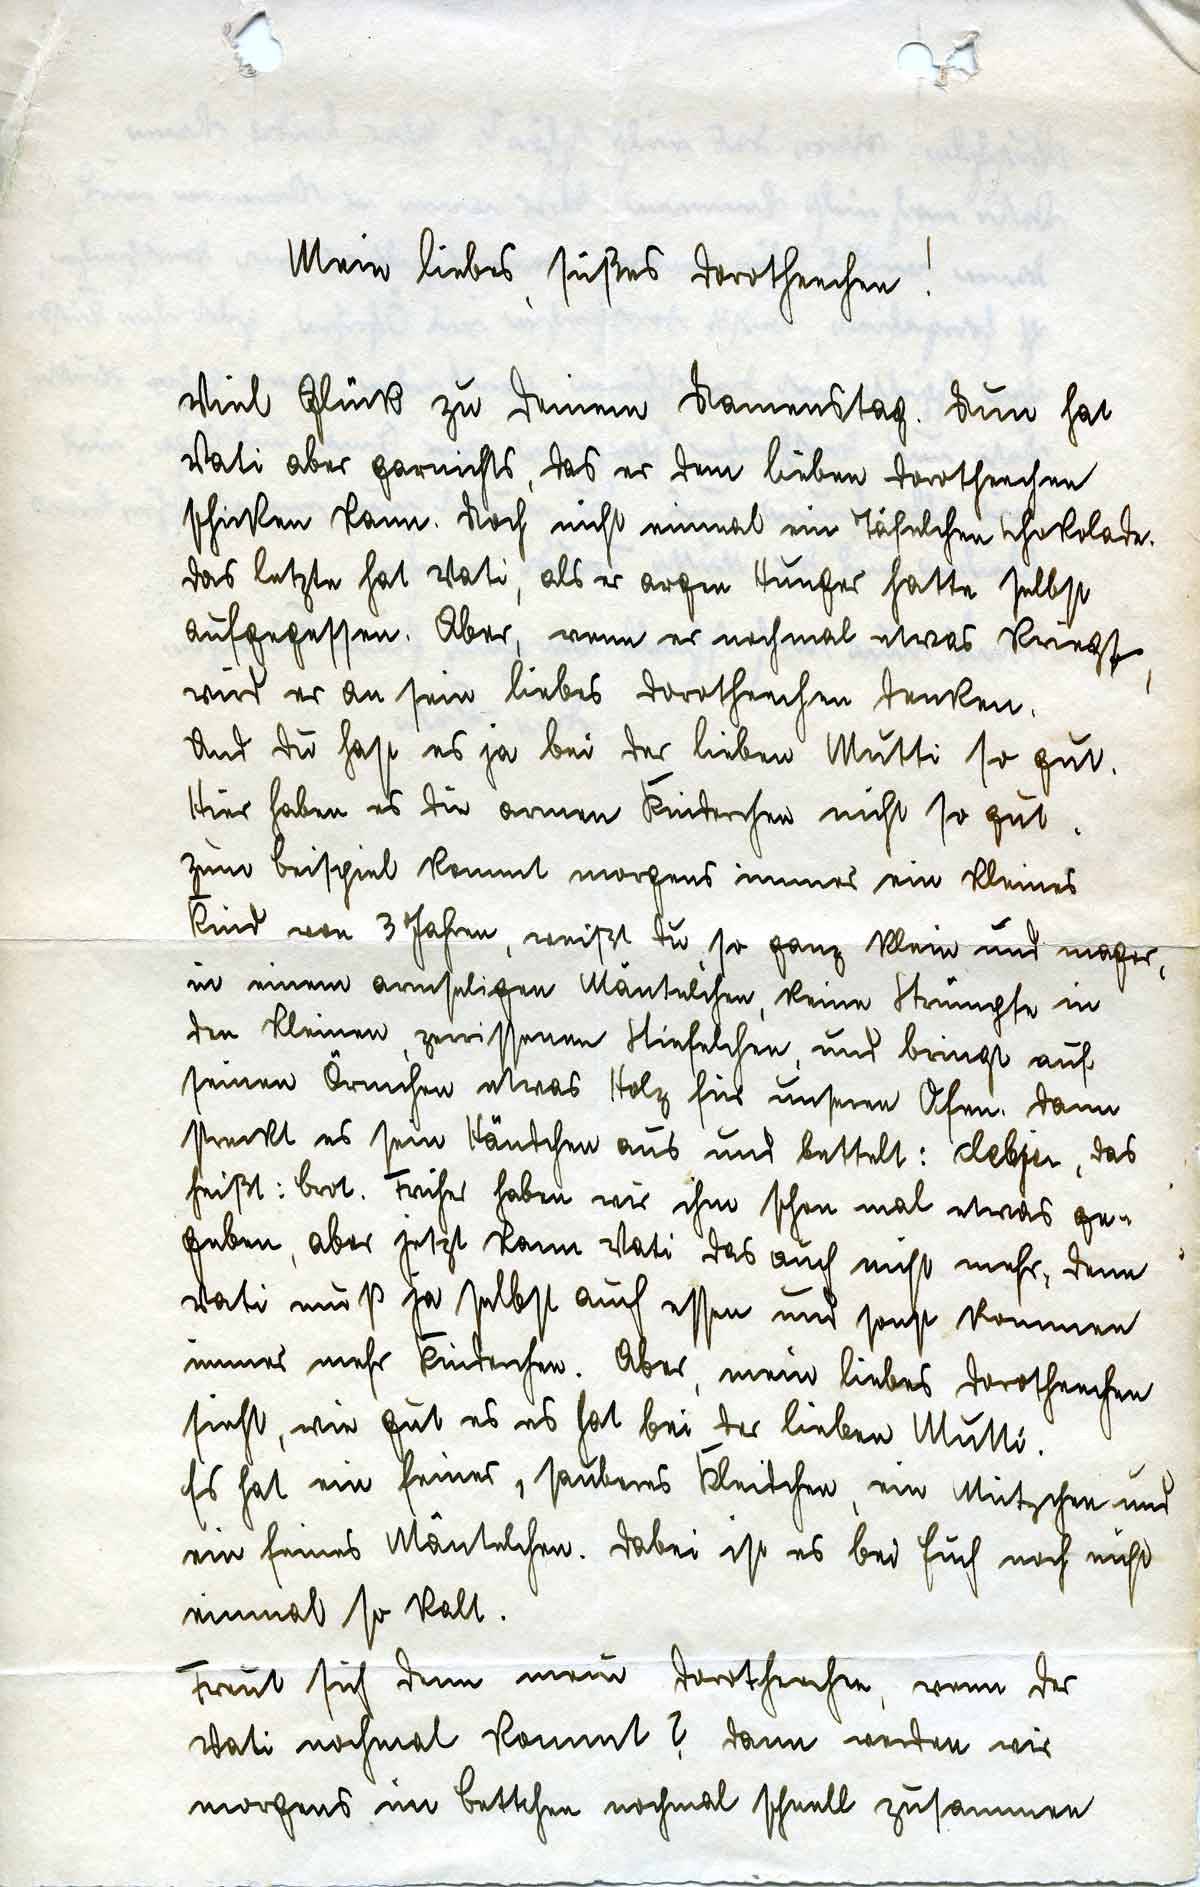 Mein liebes, süßes Dorotheechen!
Viel Glück zu Deinem Namenstag. Nun hat
Vati aber garnichts, das er dem lieben Dorotheechen
schicken kann. Noch nicht einmal ein Täfelchen Schokolade.
Das letzte hat Vati, als er argen Hunger hatte selbst
aufgegessen. Aber, wenn er nochmal etwas kriegt,
wird er an sein liebes Dorotheechen denken.
Und Du hast es ja bei der lieben Mutti so gut.
Hier haben es die armen Kinderchen nicht so gut.
Zum Beispiel kommt morgens immer ein kleines
Kind von 3 Jahren, weißt Du, so ganz klein und mager,
in einem armseligen Mäntelchen, keine Strümpfe in
den kleinen, zerrissenen Stiefelchen, und bringt auf
seinen Ärmchen etwas Holz für unseren Ofen. Dann
streckt es sein Händchen aus und bettelt: Clebje, das
heißt: Brot. Früher haben wir ihm schon mal etwas ge-
geben, aber jetzt kann Vati das auch nicht mehr, denn
Vati muß ja selbst auch essen und sonst kommen
immer mehr Kinderchen. Aber, mein liebes Dorotheechen
sieht, wie gut es es hat bei der lieben Mutti.
Es hat ein feines, sauberes Kleidchen, ein Mützchen und
ein feines Mäntelchen. Dabei ist es bei Euch noch nicht
einmal so kalt.
Freut sich denn mein Dorotheechen, wenn der
Vati nochmal kommt? Dann werden wir
morgens im Bettchen nochmal schnell zusammen